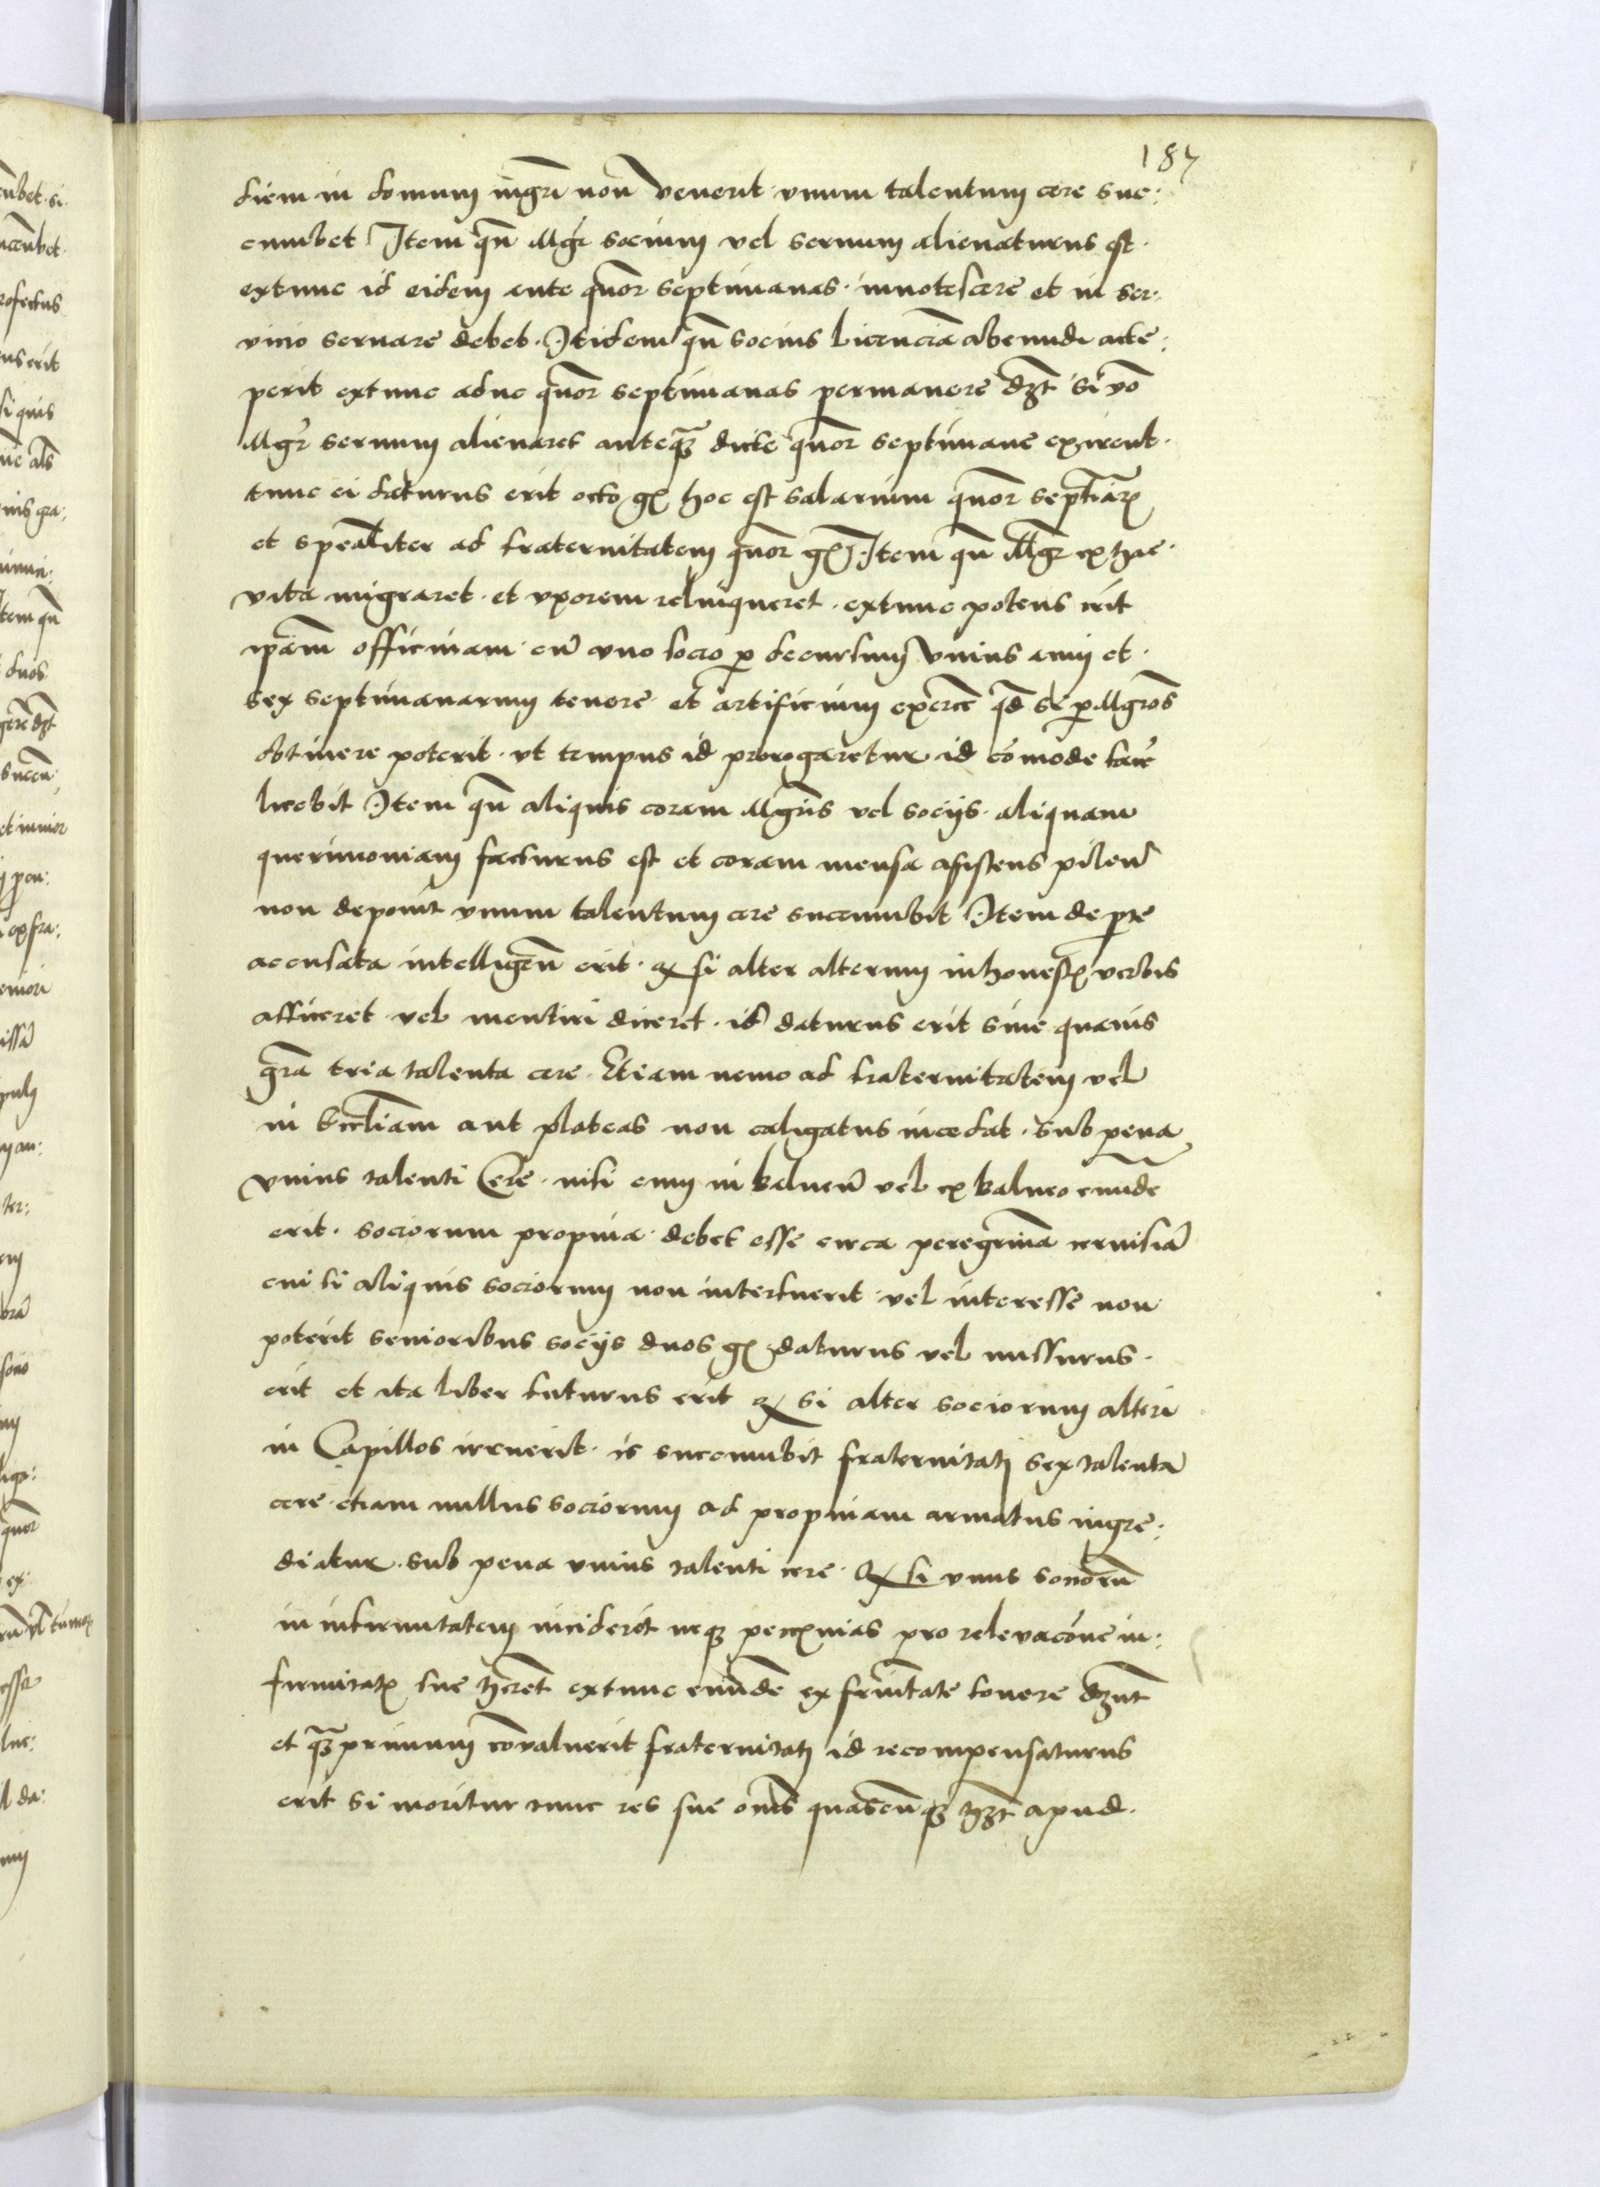 187
diem in domum mgri non venerit vnum talentum cere suc:
cumbet Item qn Mgr socium vel seruum alienaturus est
extunc id eidem ante quor septimanas innotescere et in ser:
uicio seruare debet. Itidem qn socius licencia abeundi acce:
perit extunc adhuc quor septimanas permanere dzt si vo
Mgr seruum alienaret antequa dicte quor septimane exirent
tunc ei daturus erit octo gr hoc est salarium quor septiar
et spealiter ad fraternitatem quor gr Item qn Mgr ex hac
vita migraret et vxorem relinqueret extunc potens erit
ipam officinam cu vno socio p decursum vnius anni et
sex septimanarum tenere et artificium exerce qd si p Mgros
obtinere poterit vt tempus id prorogaretur id comode face
licebit Item qn aliquis coram Mgris vel socijs aliquam
querimoniam facturus est et coram mensa assistens pileu
non deponit vnum talentum cere succumbit Item de pte
accusata intelligen erit. Et si alter alterum inhonest verbis
afficeret vel mentiri diceret id daturus erit sine quauis
gra tria talenta cere. Etiam nemo ad fraternitatem vel
in eccliam aut plateas non caligatus incedat sub pena
vnius talenti Cere nisi enim in balneu vel ex balneo eunde
erit. sociorum propina debet esse circa peregrina ceruisia
cui si aliquis sociorum non interfuerit vel interesse non
poterit senioribus socijs duos gr daturus vel missurus
erit et ita liber futurus erit Et si alter sociorum alteri
in Capillos irruerit is succumbit fraternitati sex talenta
cere etiam nullus sociorum ad propinam armatus ingre:
diatur sub pena vnius talenti cere. Et si vnus socioru
in infirmitatem inciderit neq pecunias pro releuacone in:
firmitat sue hret extunc eunde ex frnitate fouere dzunt
et qua primum coualuerit fraternitati id recompensaturus
erit si moritur tunc res sue omes quascuq hzt apud